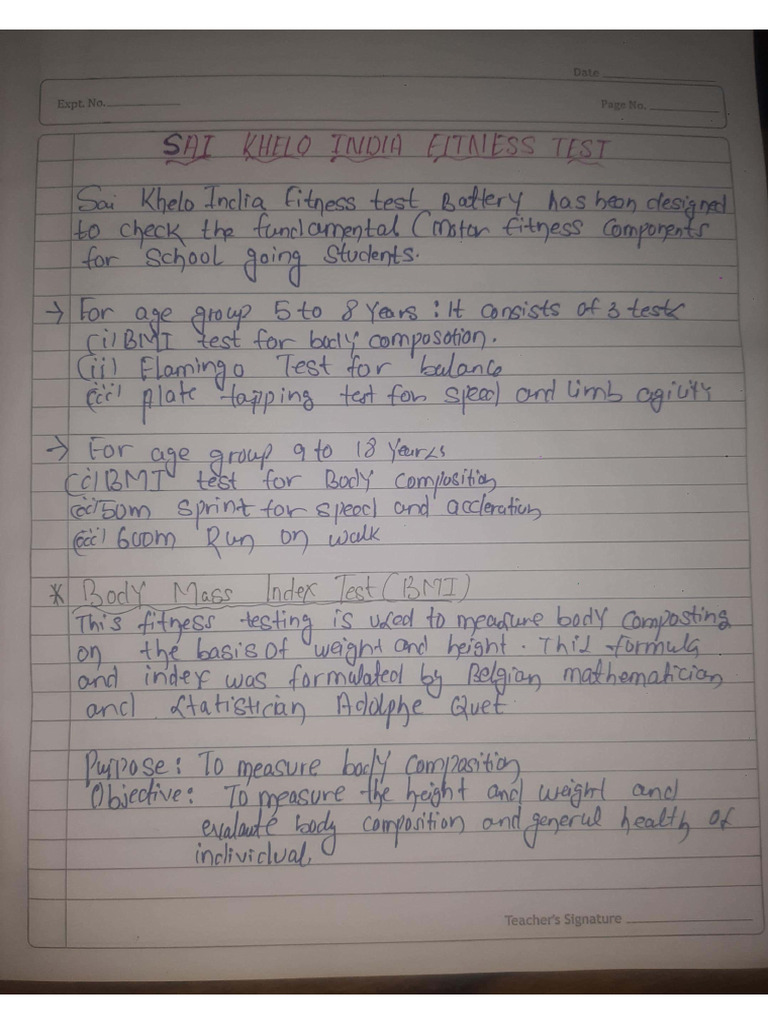 Date
Expt. No.
Page No.
SAI KHELO INDIA FITNESS TEST
Sai Khelo India Fitness test Battery has been designed
to check the fundamental (motor fitness components
for School going Students.
→ For age group 5 to 8 Years : It consists of 3 test
(i) BMI test for body composotion.
(ii) Flamingo Test for balance
(iii) Plate tapping test for speed and limb agility
→ For age group 9 to 18 Years
(i) BMI test for Body Composition
(ii) 50m Sprint for speed and accleration
(iii) 600m Run on walk
* Body Mass Index Test (BMI)
This fitness testing is used to measure body Composting
on the basis of weight and height. This formula
and index was formulated by Belgian mathematician
and Statistician Adolphe Quet
Purpose : To measure body composition
Objective : To measure the height and weight and
evalaute body composition and general health of
individual.
Teacher's Signature